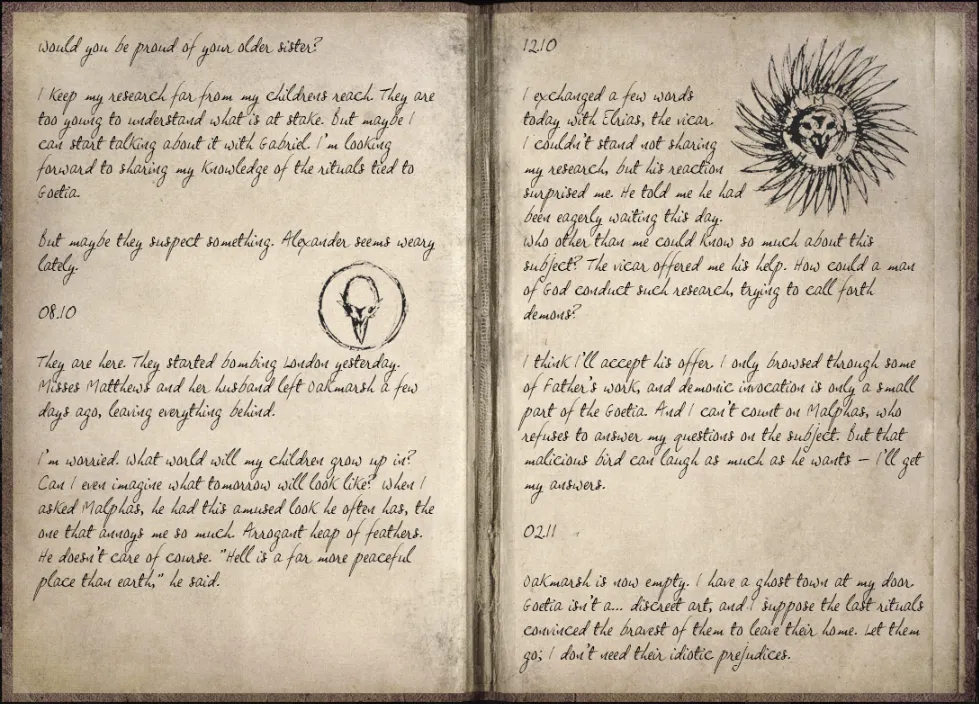 would you be proud of your older sister?
I keep my research far from my childrens reach. They are
too young to understand what is at stake. But maybe I
can start talking about it with Gabriel. I'm looking
forward to sharing my knowledge of the rituals tied to
Goetia.
But maybe they suspect something. Alexander seems weary
lately.
08.10
They are here. They started bombing London yesterday.
Misses Matthews and her husband left Oakmarsh a few
days ago, leaving everything behind.
I'm worried. What world will my children grow up in?
Can I even imagine what tomorrow will look like? When I
asked Malphas, he had this amused look he often has, the
one that annoys me so much. Arrogant heap of feathers.
He doesn't care of course. "Hell is a far more peaceful
place than earth," he said.
12.10
I exchanged a few words
today with Elrias, the vicar.
I couldn't stand not sharing
my research, but his reaction
surprised me. He told me he had
been eagerly waiting this day.
Who other than me could know so much about this
subject? The vicar offered me his help. How could a man
of God conduct such research, trying to call forth
demons?
I think I'll accept his offer. I only browsed through some
of Father's work, and demonic invocation is only a small
part of the Goetia. And I can't count on Malphas, who
refuses to answer my questions on the subject. But that
malicious bird can laugh as much as he wants – I'll get
my answers.
02.11
Oakmarsh is now empty. I have a ghost town at my door.
Goetia isn't a... discreet art, and I suppose the last rituals
convinced the bravest of them to leave their home. Let them
go; I don't need their idiotic prejudices.